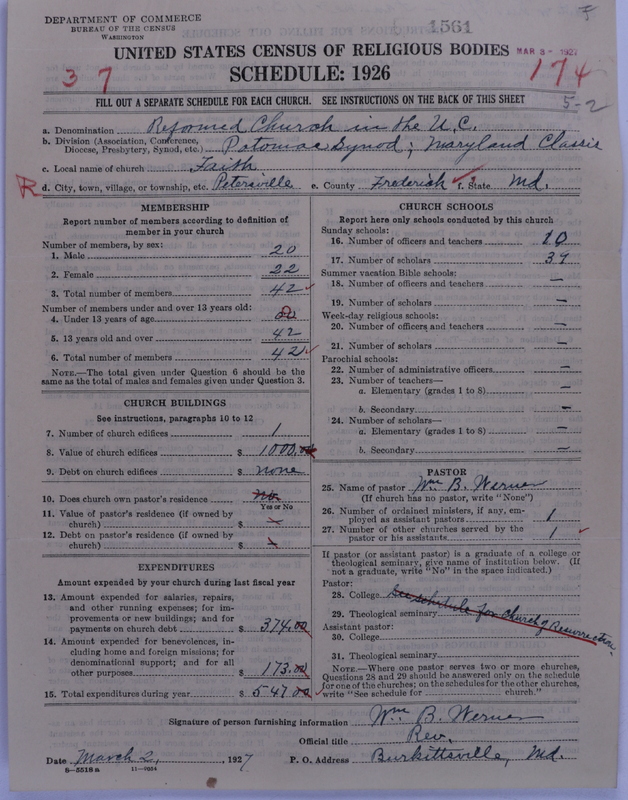 DEPARTMENT OF COMMERCE
BUREAU OF THE CENSUS
WASHINGTON
1561
UNITED STATES CENSUS OF RELIGIOUS BODIES
MAR 3 - 1927
SCHEDULE: 1926
3 7
174
FILL OUT A SEPARATE SCHEDULE FOR EACH CHURCH. SEE INSTRUCTIONS ON THE BACK OF THIS SHEET
5-2
a. Denomination Reformed Church in the U.S.
b. Division (Association, Conference, Diocese, Presbytery, Synod, etc.) Potomac Synod; Maryland Classis
c. Local name of church Faith
R d. City, town, village, or township, etc. Petersville e. County Frederick f. State Md.
MEMBERSHIP
Report number of members according to definition of
member in your church
Number of members, by sex:
1. Male 20
2. Female 22
3. Total number of members 42
Number of members under and over 13 years old:
4. Under 13 years of age
5. 13 years old and over 42
6. Total number of members 42
NOTE.—The total given under Question 6 should be
the same as the total of males and females given under Question 3.
CHURCH BUILDINGS
See instructions, paragraphs 10 to 12
7. Number of church edifices 1
8. Value of church edifices $ 1000.00
9. Debt on church edifices $ none
10. Does church own pastor's residence No
Yes or No
11. Value of pastor's residence (if owned by
church) $
12. Debt on pastor's residence (if owned by
church) $
EXPENDITURES
Amount expended by your church during last fiscal year
13. Amount expended for salaries, repairs,
and other running expenses; for im-
provements or new buildings; and for
payments on church debt $ 374.00
14. Amount expended for benevolences, in-
cluding home and foreign missions; for
denominational support; and for all
other purposes $ 173.00
15. Total expenditures during year $ 547.00
CHURCH SCHOOLS
Report here only schools conducted by this church
Sunday schools:
16. Number of officers and teachers 10
17. Number of scholars 39
Summer vacation Bible schools:
18. Number of officers and teachers —
19. Number of scholars —
Week-day religious schools:
20. Number of officers and teachers —
21. Number of scholars —
Parochial schools:
22. Number of administrative officers —
23. Number of teachers—
a. Elementary (grades 1 to 8) —
b. Secondary —
24. Number of scholars—
a. Elementary (grades 1 to 8) —
b. Secondary —
PASTOR
25. Name of pastor Wm B. Werner
(If church has no pastor, write "None")
26. Number of ordained ministers, if any, em-
ployed as assistant pastors 1
27. Number of other churches served by the
pastor or his assistants 1
If pastor (or assistant pastor) is a graduate of a college or
theological seminary, give name of institution below. (If
not a graduate, write "No" in the space indicated.)
Pastor:
28. College See schedule for Church of Resurrection
29. Theological seminary
Assistant pastor:
30. College
31. Theological seminary
NOTE.—Where one pastor serves two or more churches,
Questions 28 and 29 should be answered only on the schedule
for one of the churches; on the schedules for the other churches,
write "See schedule for church."
Signature of person furnishing information Wm B. Werner
Official title Rev.
Date March 2, 1927 P. O. Address Burkittsville, Md.
8-5518a 11-9054